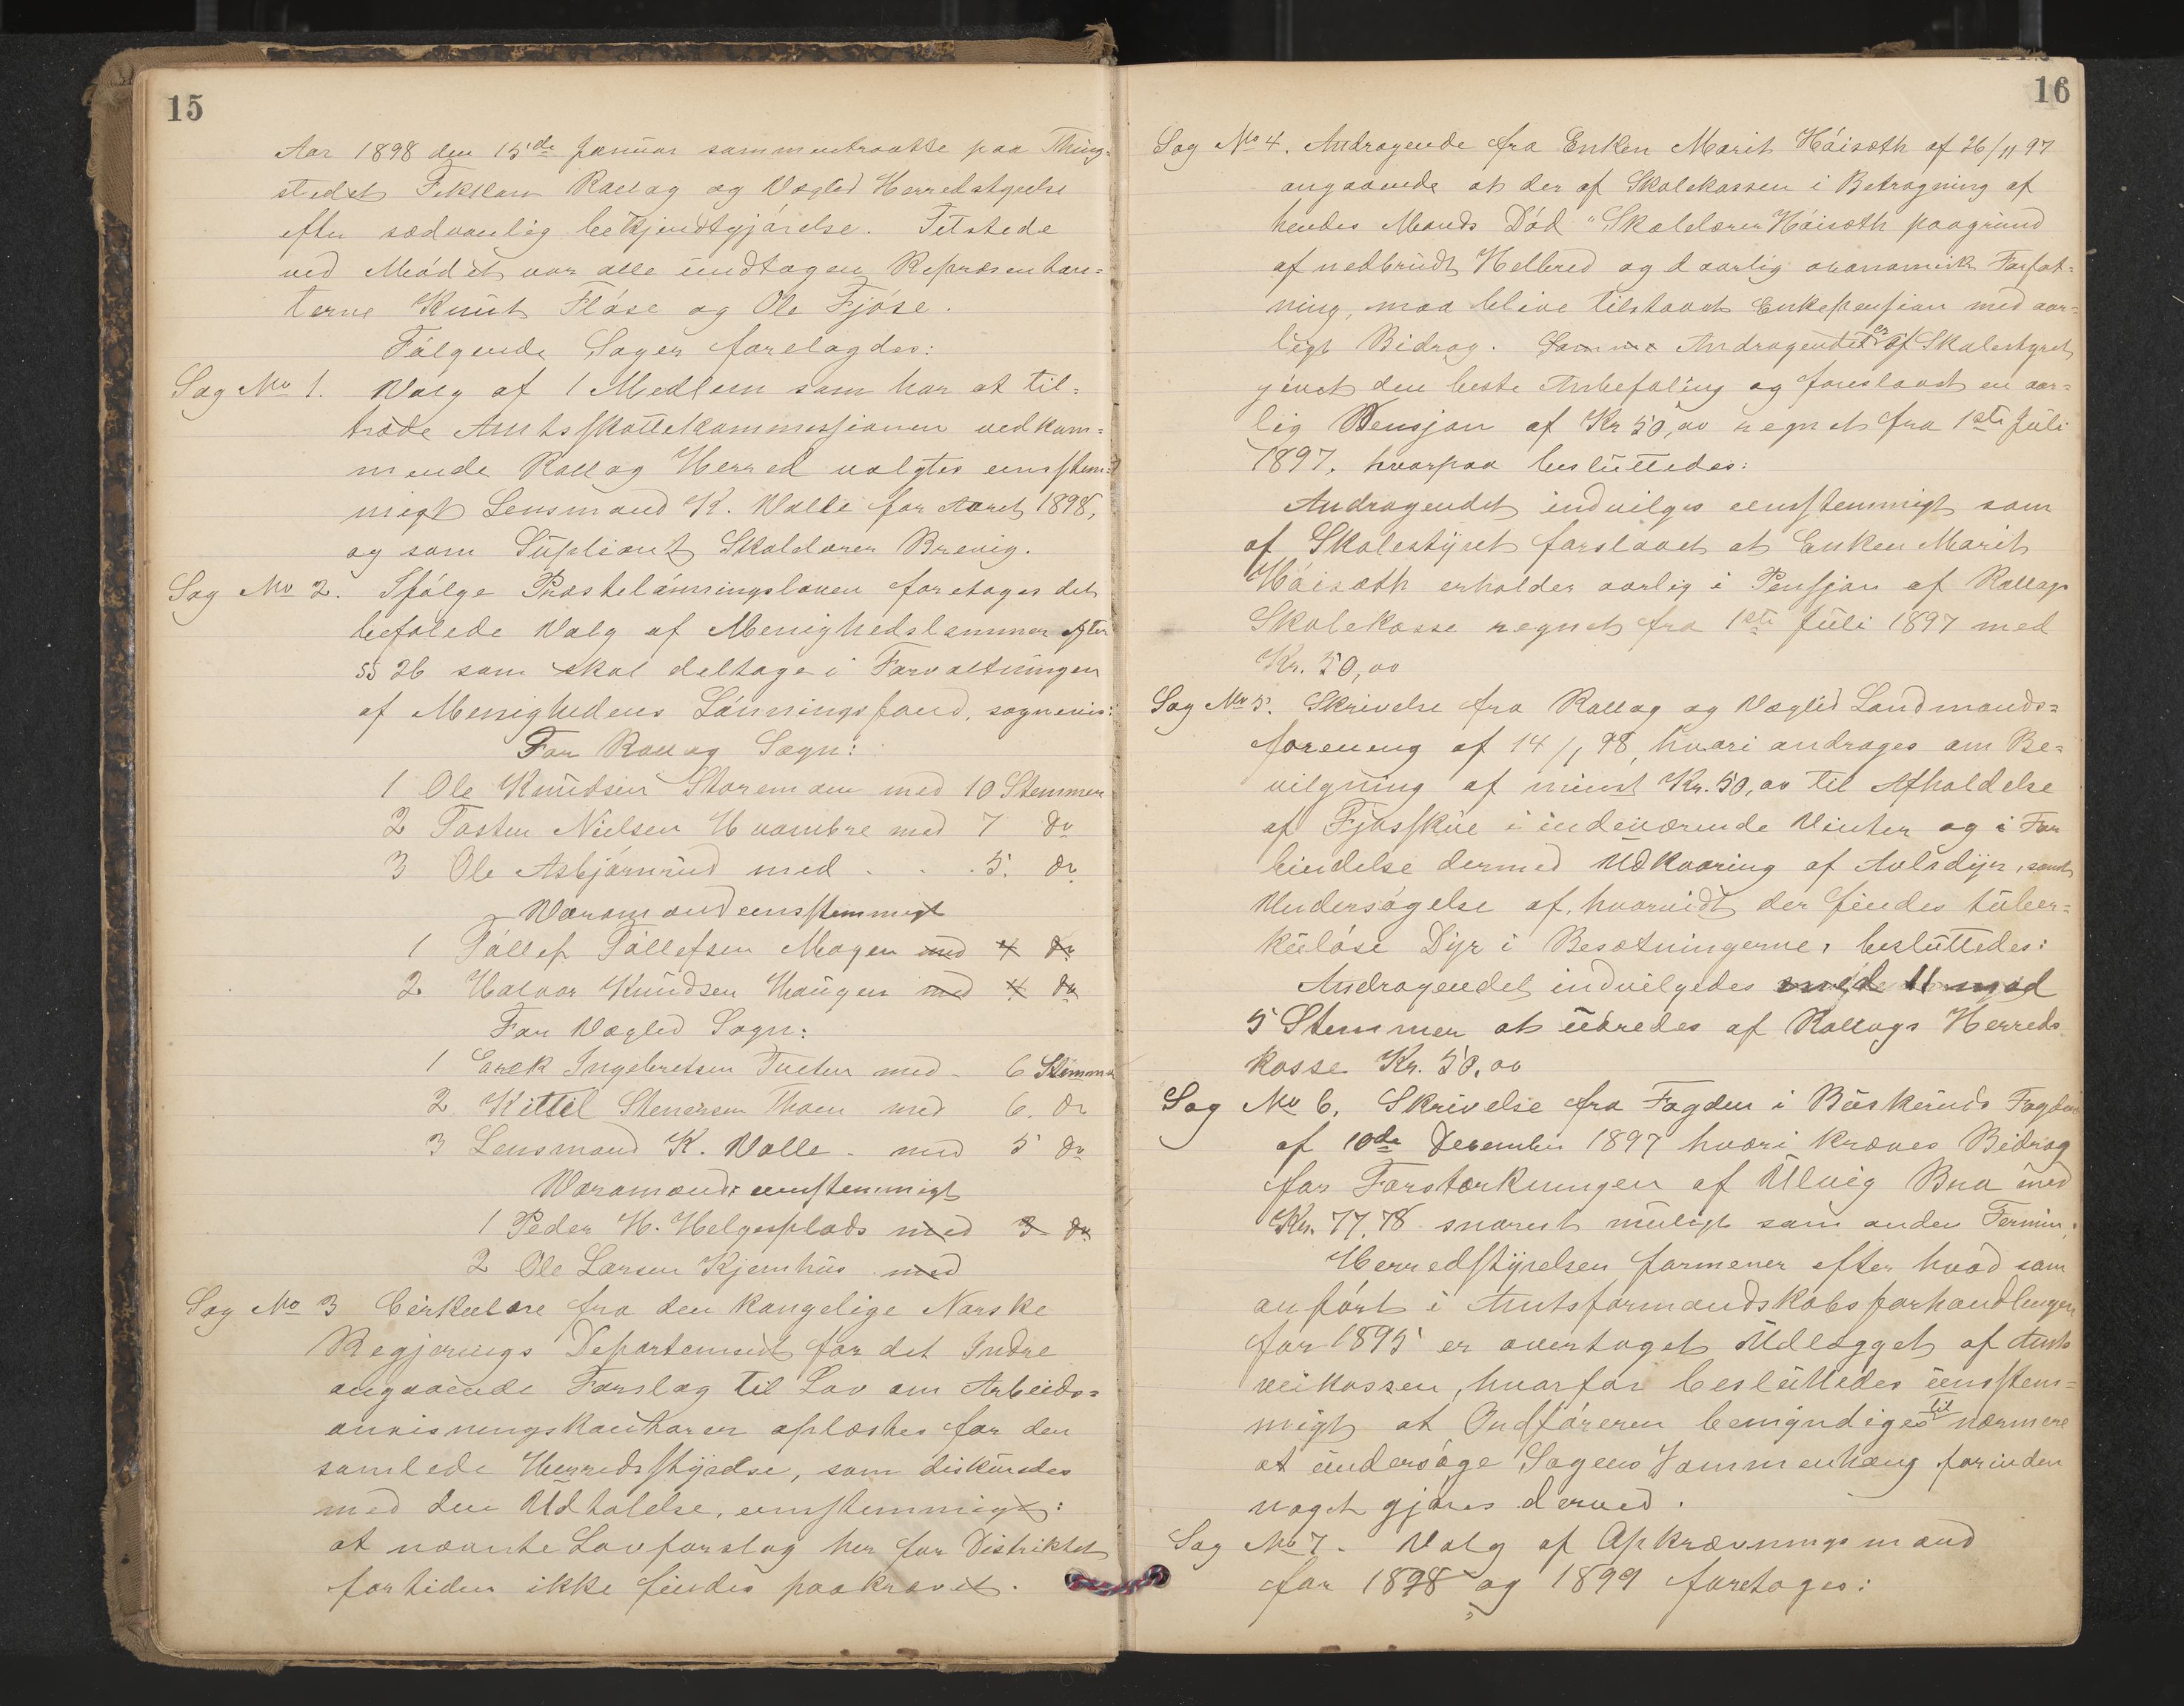 15
Aar 1898 den 15de Januar sammentraatte paa Thing-
stedet Fekkan Rollag og Vægled Herredstyrelse
efter sædvanlig bekjendtgjórelse. Tilstede
ved Módet var alle undtagen Repræsentan-
terne Knut Flóse og Ole Fjóse.
Fólgende Sager forelagdes:
Sag No 1. Valg af 1 Medlem som har at til-
træde Amtsskattekommessionen vedkom-
mende Rollag Herred valgtes eensstem-
migt Lensmand K. Valle for Aaret 1898,
og som Supliant Skolelærer Brevig.
Sag No 2. Ifólge Præstelónningsloven foretages det
befalede Valg af Menighedslemmer efter
§§ 26 som skal deltage i Forvaltningen
af Menighedens Lónningsfond, sognevis:
For Rollag Sogn:
1 Ole Knudsen Storemoen med 10 Stemmer
2 Tosten Nielsen Hvambre med 7 do
3 Ole Asbjórnrud med . . . 5. do
Varamænd eensstemmigt
1 Tóllef Tóllefsen Mogen med 4 do
2 Halvor Knudsen Haugen med 4 do
For Vægled Sogn:
1 Erek Ingebretsen Tveten med - 6 Stemmer
2 Kittil Stenersen Thoen med 6. do
3 Lensmand K. Valle - med 5 do
Varamænd: eenstemmigt
1 Peder H. Helgesplads med 3 do
2 Ole Larsen Kjemhus med
Sag No 3 Cirkulære fra den kongelige Norske
Regjerings Departement for det Indre
angaaende Forslag til Lov om Arbeids-
anvisningskontorer oplæstes for den
samlede Herredsstyrelse, som diskuredes
med den Udtalelse, eensstemmigt:
at nævnte Lovforslag her for Distriktet
fortiden ikke findes paakrævet.
16
Sag No 4. Andragende fra Enken Marit Hóisæth af 26/11 97
angaaende at der af Skolekassen i Betragning af
hendes Mands Dód "Skolelærer Hóisæth paagrund
af nedbrudt Helbred og daarlig økonomisk Forfat-
ning, maa blive tilstaaet Enkepension med aar-
ligt Bidrag. Samme Andragendet er af Skolestyret
givet den beste Anbefaling og foreslaaet en aar-
lig Pensjon af Kr 50,00 regnet fra 1ste Juli
1897. hvorpaa besluttedes:
Andragendet indvilges eensstemmigt som
af Skolestyret forslaaet at Enken Marit
Hóisæth erholder aarlig i Pensjon af Rollags
Skolekasse regnet fra 1ste Juli 1897 med
Kr. 50,00
Sag No 5. Skrivelse fra Rollag og Vægled Landmands-
forening af 14/1 98, hvori andrages om Be-
vilgning af minst Kr. 50,00 til Afholdelse
af Fjósskue i indeværende Vinter og i For
bindelse dermed Udkaaring af Avlsdyr, samt
Undersógelse af, hvorvidt der findes tuber-
kulóse Dyr i Besætningerne, besluttedes:
Andragendet indvilgedes 11 mod
5 Stemmer at udredes af Rollags Herreds
kasse Kr. 50,00
Sag No 6. Skrivelse fra Fogden i Buskeruds Fogderi
af 10de December 1897 hvori kræves Bidrag
for Forstærkningen af Ulvig Bro med
Kr. 77,78 snarest muligt som anden Termin.
Herredsstyrelsen formener efter hvad som
anfórt i Amtsformandskabsforhandlingen
for 1895 er overtaget Udlægget af Amts
veikassen, hvorfor besluttedes eensstem-
migt at Ordfóreren bemyndiges til nærmere
at undersóge Sagens Sammenhæng forinden
noget gjóres derved.
Sag No 7. Valg af Opkrævningsmænd
for 1898 og 1899 foretoges: